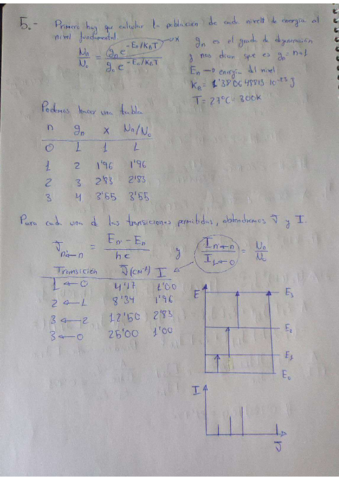 5.- Primero hay que calcular la población de cada nivel de energía al
nivel fundamental.
Nn/N0 = gn e^-En/KBT / g0 e^-E0/KBT
x gn es el grado de degeneración
y nos dicen que es gn = n+1
En → energía del nivel
T = 27ºC = 300K
Podemos hacer una tabla
n gn x Nn/N0
0 1 1 1
1 2 1'96 1'96
2 3 2'83 2'83
3 4 3'55 3'55
Para cada una de las transiciones permitidas, obtenemos ν̃ y I.
= En - En / hc y In←n / I1←0 = Nn / N0
Transición ν̃(cm⁻¹) I
1←0 4'17 1'00
2←1 8'34 1'96
3←2 12'50 2'83
3←0 25'00 1'00
E E3
E2
E1
E0
I
ν̃